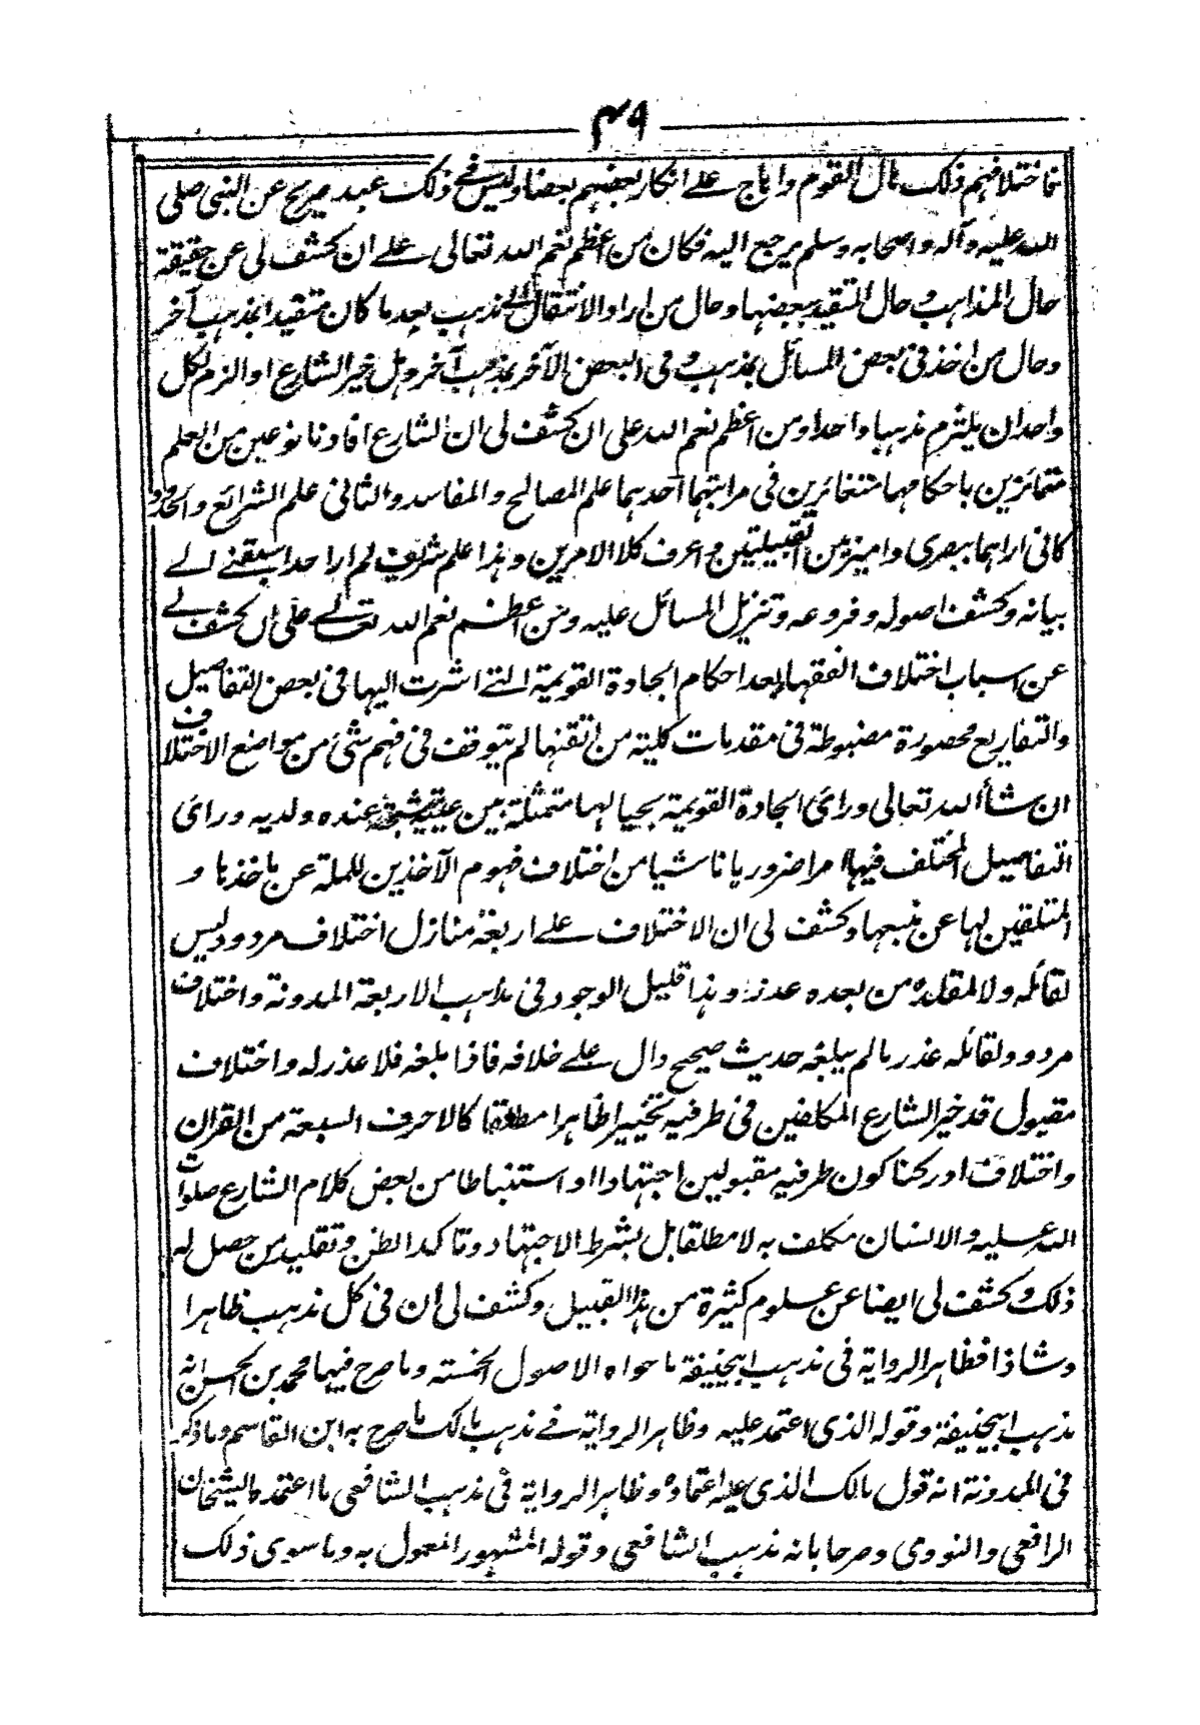 ٤٩
فاختلافهم ذلك بال القوم واباح على انكار بعضهم بعضا وليس في ذلك عبد صريح عن النبي صلى
الله عليه وآله واصحابه وسلم يرجع اليه فكان من اعظم نعم الله تعالى على ان كشف لى عن حقيقة
حال المذاهب وحال المتقيد ببعضها وحال من اراد الانتقال الى مذهب بعد ما كان متقيدا بمذهب آخر
وحال من اخذ فى بعض المسائل بمذهب وفى البعض الآخر بمذهب آخر وهل خير الشارع او الزم لكل
واحد ان يلتزم مذهبا واحدا ومن اعظم نعم الله على ان كشف لى ان الشارع افادنا نوعين من العلم
متمائزين باحكامهما متغائرين فى مراتبهما احدهما علم المصالح والمفاسد والثانى علم الشرائع والحدود
كانى اراهما ببصرى واميز بين القبيلتين واعرف كلا الامرين وهذا علم شريف لم ار احدا سبقنے الے
بيانه وكشف اصوله وفروعه وتنزيل المسائل عليه ومن اعظم نعم الله تعالے على ان كشف لے
عن اسباب اختلاف الفقهاء بعد احكام الجادة القويمة التے اشرت اليها فى بعض التفاصيل
والتفاريع محصورة مضبوطة فى مقدمات كلية من اتقنها لم يتوقف فى فهم شئ من مواضع الاختلاف
ان شاء الله تعالى ورائ الجادة القويمة بحيالها متمثلة بين عينيه عنده ولديه ورائ
التفاصيل المختلف فيها امرا ضروريا ناشيا من اختلاف فهوم الآخذين للملة عن ماخذها و
المتلقين لها عن منبعها وكشف لى ان الاختلاف علے اربعة منازل اختلاف مردود ليس
لقائله ولا لمقلده من بعده عذر وهذا قليل الوجود فى مذاهب الاربعة المدونة واختلاف
مردود ولقائله عذر ما لم يبلغه حديث صحيح دال علے خلافه فاذا بلغه فلا عذر له واختلاف
مقبول قد خير الشارع المكلفين فى طرفيه تخييرا ظاهرا مطلقا كالاحرف السبعة من القران
واختلاف ادركنا كون طرفيه مقبولين اجتهادا او استنباطا من بعض كلام الشارع صلوات
الله عليه والانسان مكلف به لا مطلقا بل بشرط الاجتهاد وتاكد الظن وتقليد من حصل له
ذلك وكشف لى ايضا عن علوم كثيرة من هذا القبيل وكشف لى ان فى كل مذهب ظاهرا
وشاذا فظاهر الرواية فى مذهب ابيحنيفة ما حواه الاصول الخمسة وما صرح فيها محمد بن الحسن انه
مذهب ابيحنيفة وقوله الذى اعتمد عليه وظاهر الرواية فے مذهب مالك ما صرح به ابن القاسم وما ذكر
فى المدونة انه قول مالك الذى عليه اعتماده وظاهر الرواية فى مذهب الشافعى ما اعتمده الشيخان
الرافعى والنووى وصرحا بانه مذهب الشافعى وقوله المشهور المعمول به وما سوى ذلك